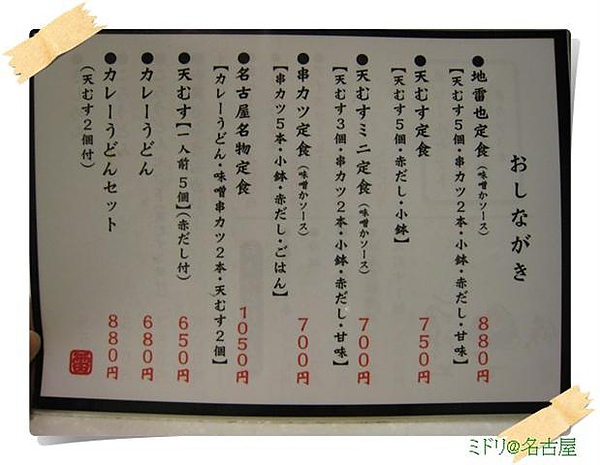 おしながき
●地雷也定食（味噌かソース） 880円
【天むす5個・串カツ2本・小鉢・赤だし・甘味】
●天むす定食 750円
【天むす5個・赤だし・小鉢】
●天むすミニ定食（味噌かソース） 700円
【天むす3個・串カツ2本・小鉢・赤だし・甘味】
●串カツ定食（味噌かソース） 700円
【串カツ5本・小鉢・赤だし・ごはん】
●名古屋名物定食 1050円
【カレーうどん・味噌串カツ2本・天むす2個】
●天むす【一人前5個】（赤だし付） 650円
●カレーうどん 680円
●カレーうどんセット 880円
（天むす2個付）
ミドリ@名古屋